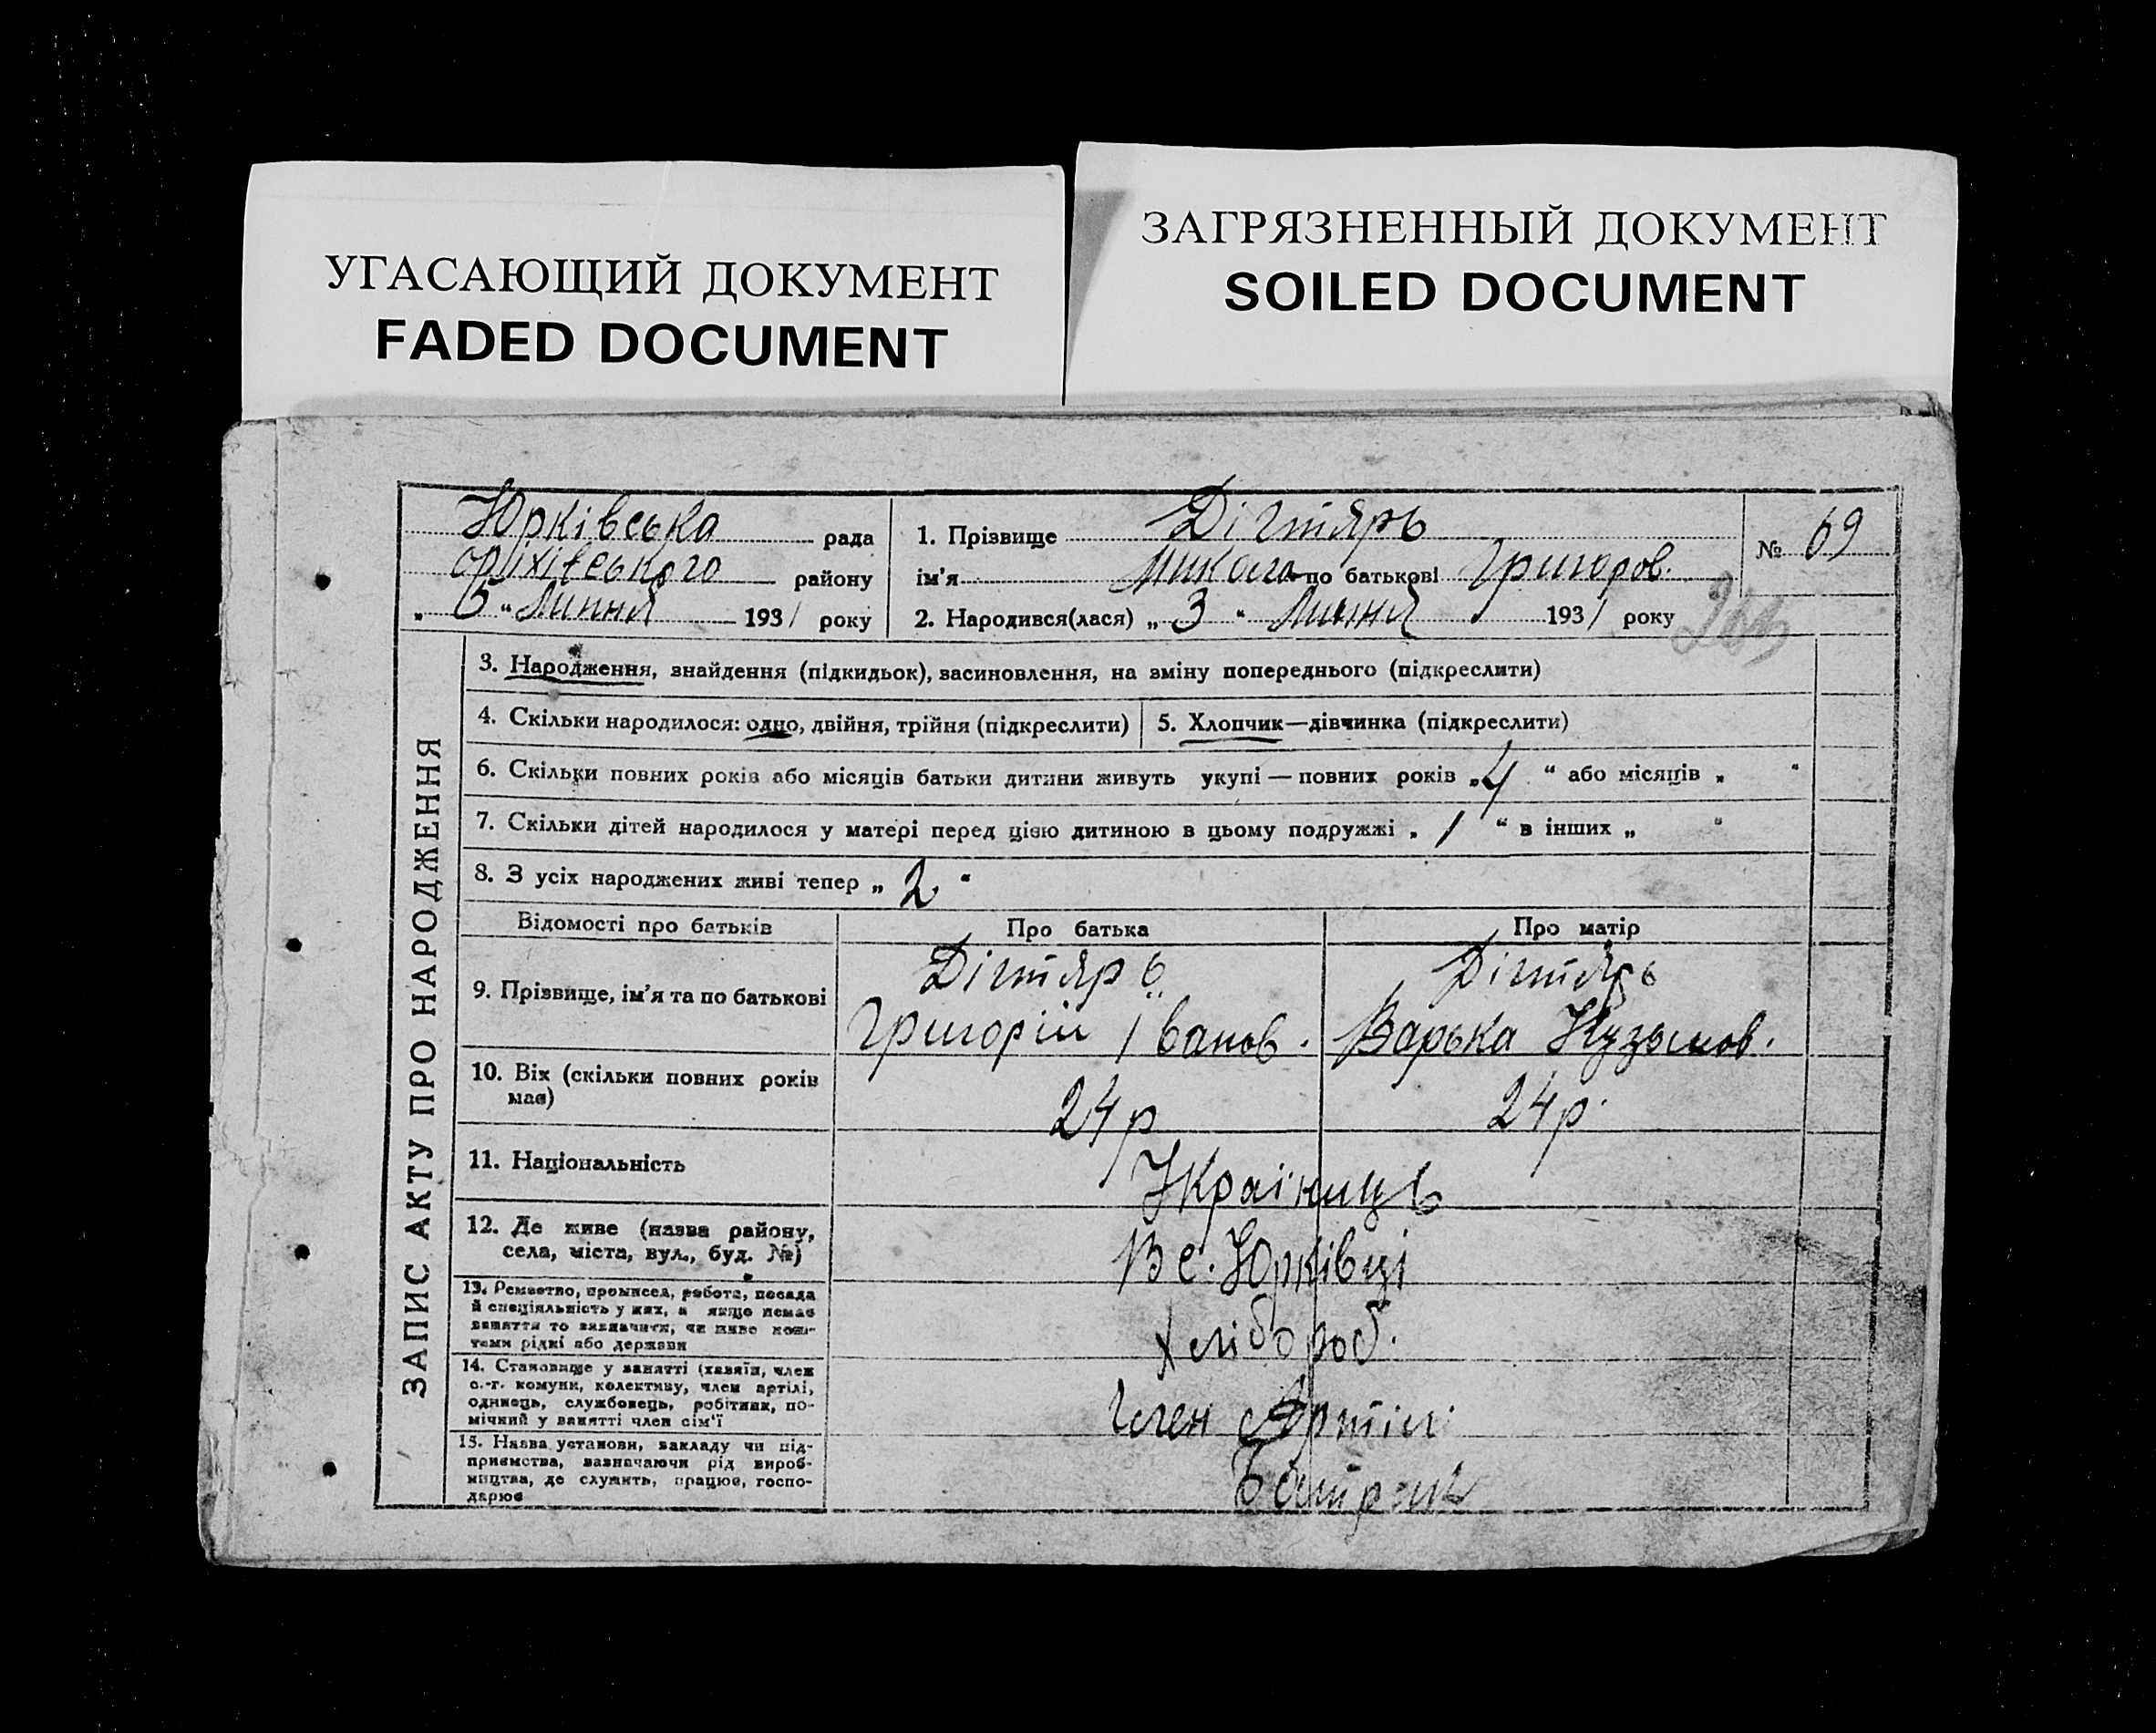 УГАСАЮЩИЙ ДОКУМЕНТ
FADED DOCUMENT
ЗАГРЯЗНЕННЫЙ ДОКУМЕНТ
SOILED DOCUMENT
Юрківська рада
оріхівського району
„ 5 “ Липня 1931 року
1. Прізвище Дігтярь
ім’я Микола по батькові Григоров.
2. Народився(лася) „ 3 “ Липня 1931 року
№ 69
ЗАПИС АКТУ ПРО НАРОДЖЕННЯ
3. Народження, знайдення (підкидьок), засиновлення, на зміну попереднього (підкреслити)
4. Скільки народилося: одно, двійня, трійня (підкреслити)
5. Хлопчик—дівчинка (підкреслити)
6. Скільки повних років або місяців батьки дитини живуть укупі — повних років „ 4 “ або місяців „ “
7. Скільки дітей народилося у матері перед цією дитиною в цьому подружжі „ 1 “ в інших „ “
8. З усіх народжених живі тепер „ 2 “
Відомості про батьків
Про батька
Про матір
9. Прізвище, ім’я та по батькові
Дігтярь
Григорій Іванов.
Дігтярь
Варька Кузьмов.
10. Вік (скільки повних років
має)
24 р
24 р.
11. Національність
Українець
12. Де живе (назва району,
села, міста, вул., буд. №)
В с. Юрківці
13. Ремество, промисел, робота, посада
й спеціяльність у них, а якщо немає
заняття то зазначити, чи живе кош-
тами рідні або держави
Хлібороб.
14. Становище у занятті (хазяїн, член
с.-г. комуни, колективу, член артілі,
одинець, службовець, робітник, по-
мічний у занятті член сім’ї
Член Артіли
15. Назва установи, закладу чи під-
приємства, зазначаючи рід вироб-
ництва, де служить, працює, госпо-
дарює